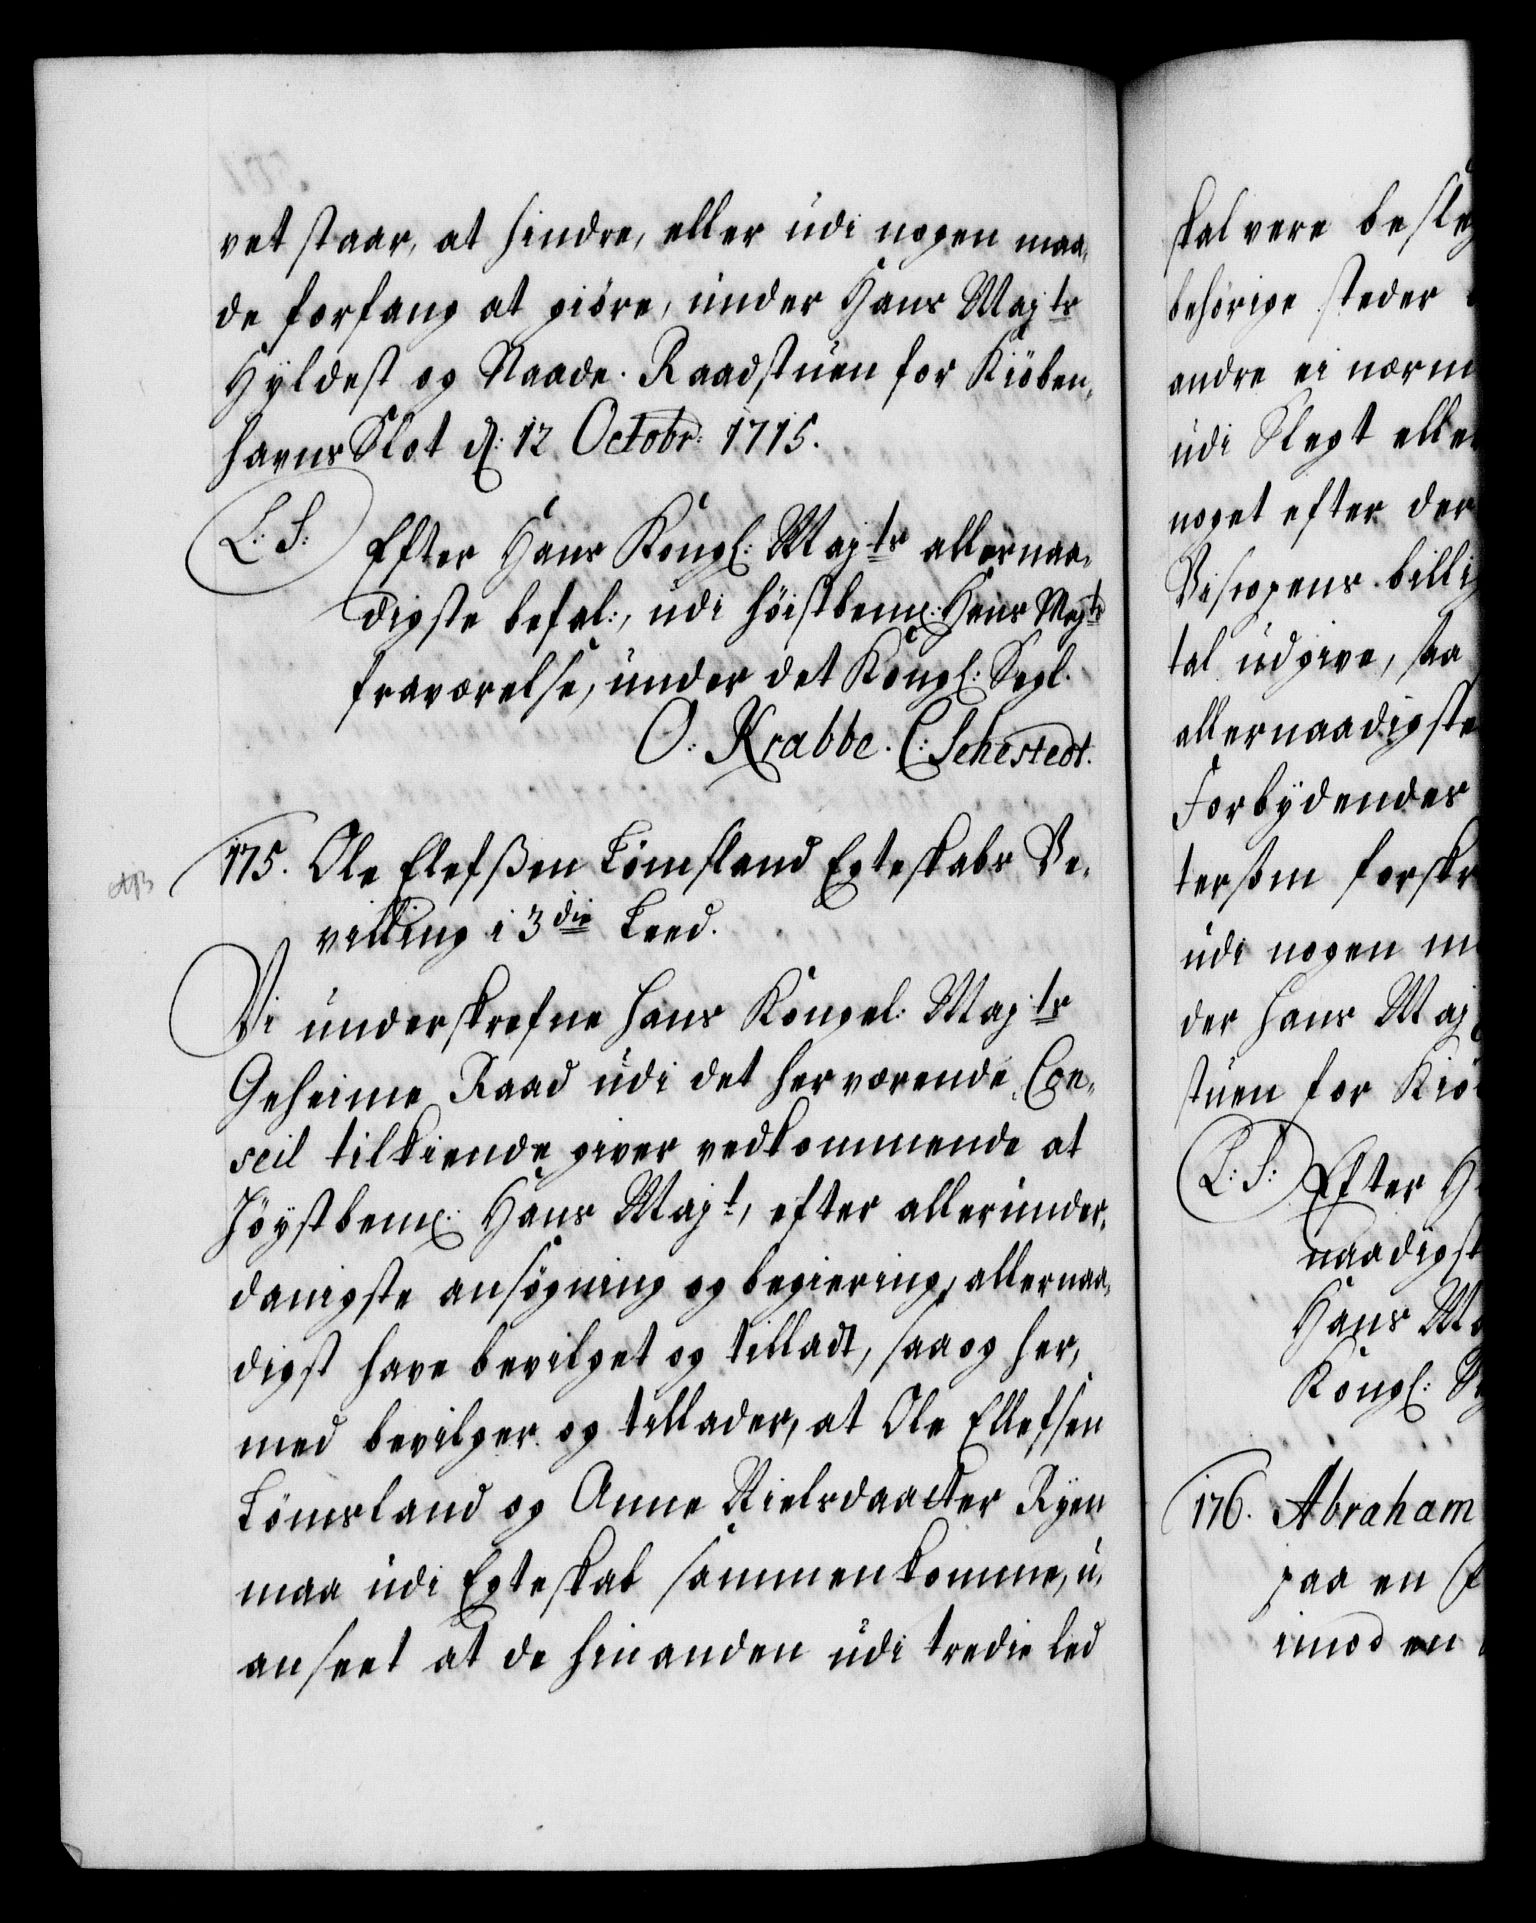 vet staar, at hindre, eller udi nogen maa,
de forfang at giöre, under Hans Maj:ts
Hyldest og Naade. Raadstuen for Kiöben,
havns Slot d: 12 Octobr: 1715.
L: S:
Efter Hans Kongl: Maj:ts allernaa,
digste befal:, udi höistbem: Hans Majts
fraværelse, under det Kongl: Segl.
O: Krabbe. C: Sehestedt.
175. Ole Elefsen Lömsland Egteskabs Be,
villing i 3die Leed.
Vi underskrefne Hans Kongel: Maj:ts
Geheime Raad udi det herværende Con,
seil tilkiende giver vedkommende at
Höystbem: Hans Majt, efter allerunder,
danigste ansögning og begiering, allernaa,
digst have bevilget og tilladt, saa og her,
med bevilger og tillader, at Ole Ellefsen
Lömsland og Anne Nielsdaatter Ryen
maa udi Egteskab sammenkomme, u,
anseet at de hinanden udi tredie led
skal vere besleg
behörige steder
andre ei nærm
udi Slegt elle
noget efter der
Bispens billig
tal udgive, saa
allernaadigste
Forbydendes
tersom forskr
udi nogen m
der Hans Maj
stuen for Kiö
L: S:
Efter H
naadigst
Hans Ma
Kongl: S
176. Abraham
paa en
imod en